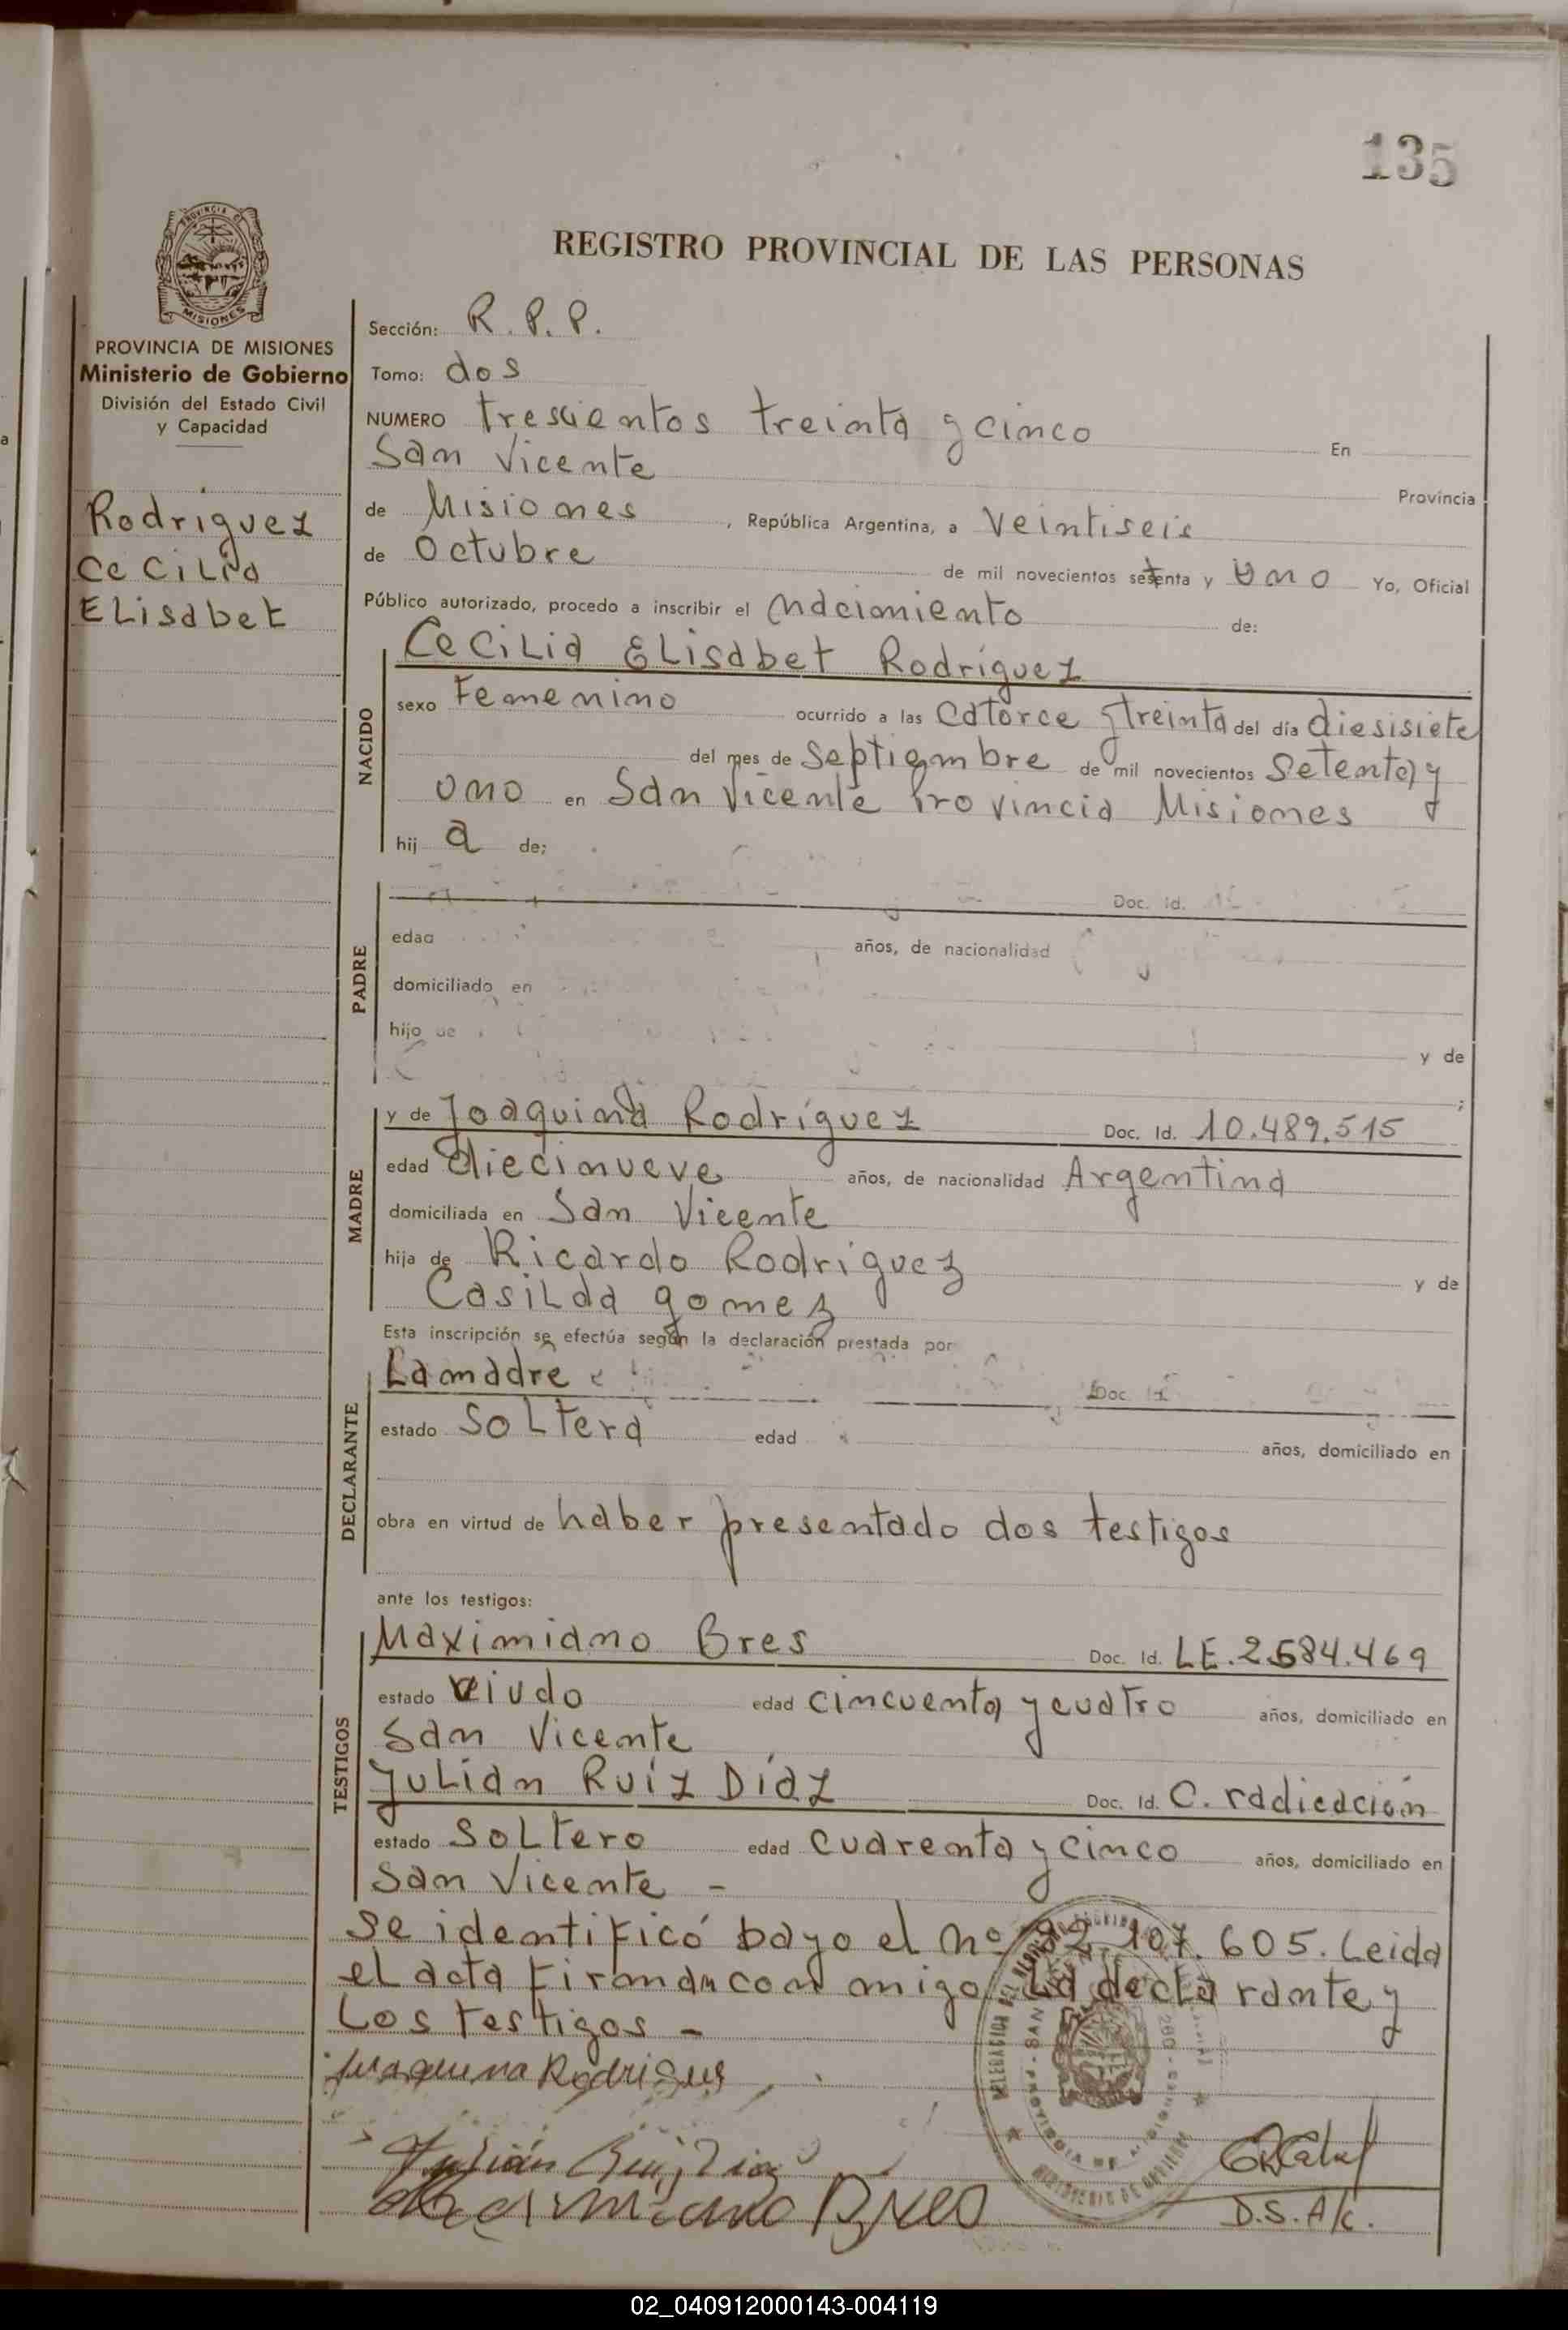 135
PROVINCIA DE
MISIONES
REGISTRO PROVINCIAL DE LAS PERSONAS
PROVINCIA DE MISIONES
Ministerio de Gobierno
División del Estado Civil
y Capacidad
Rodriguez
CeCiLia
ELisabet
Sección: R. P. P.
Tomo: dos
NUMERO trescientos treinta y cinco En
San Vicente Provincia
de Misiones , República Argentina, a Veintiseis
de Octubre de mil novecientos setenta y uno Yo, Oficial
Público autorizado, procedo a inscribir el nacimiento de:
NACIDO
CeCiLia ELisabet Rodríguez
sexo Femenino ocurrido a las catorce y treinta del día diesisiete
del mes de septiembre de mil novecientos setenta y
uno en San Vicente Provincia Misiones
hij a de:
PADRE
Doc. Id.
edad años, de nacionalidad
domiciliado en
hijo de
y de
;
MADRE
y de Joaquina Rodríguez Doc. Id. 10.489.515
edad diecinueve años, de nacionalidad Argentina
domiciliada en San Vicente
hija de Ricardo Rodriguez y de
CasiLda gomez
Esta inscripción se efectúa según la declaración prestada por
DECLARANTE
La madre Doc. Id.
estado soLtera edad años, domiciliado en
obra en virtud de haber presentado dos testigos
ante los testigos:
TESTIGOS
Maximiano Bres Doc. Id. LE. 2.584.469
estado viudo edad cincuenta y cuatro años, domiciliado en
San Vicente
JuLián Ruíz Díaz Doc. Id. C. radicación
estado soLtero edad cuarenta y cinco años, domiciliado en
San Vicente -
se identificó bayo el nº 92.107.605. Leida
el acta firman con migo La declarante y
Los testigos -
Juaquina Rodrigues
Julián Ruiz Diaz
Maximiano Bres
D.S.A/c.
02_040912000143-004119